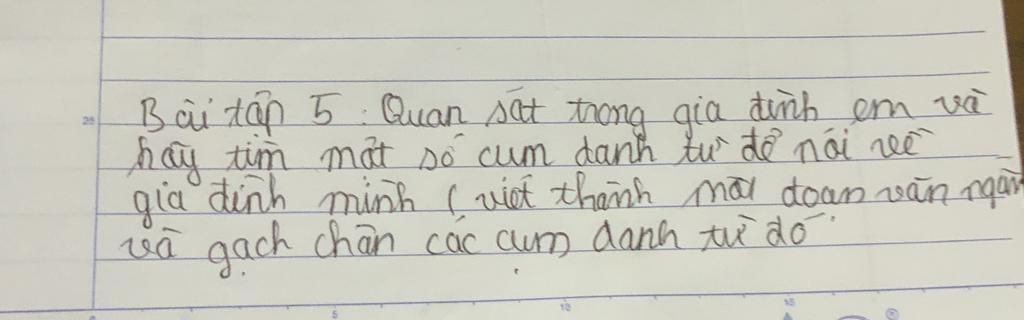 Bài tập 5 : Quan sát trong gia đình em và
hãy tìm một số cụm danh từ để nói về
gia đình mình ( viết thành một đoạn văn ngắn
và gạch chân các cụm danh từ đó
20
5
10
15